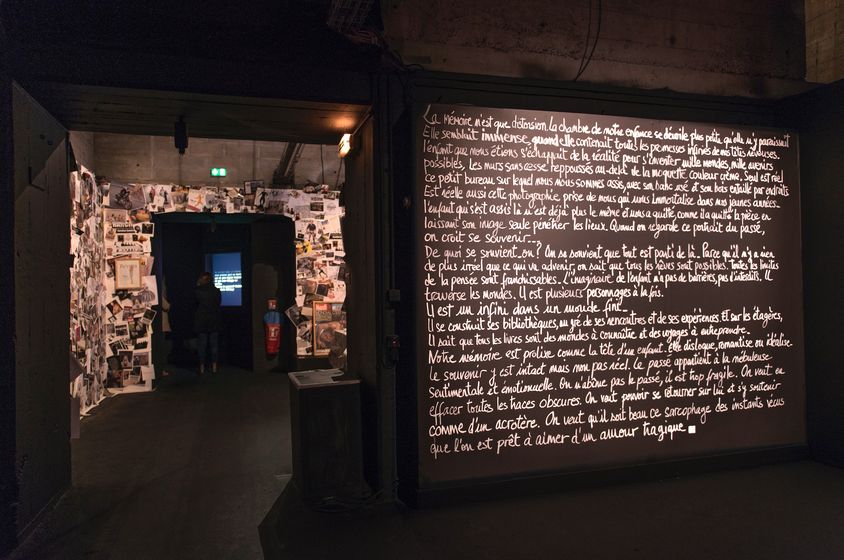 La mémoire n'est que distorsion. La chambre de notre enfance se dévoile plus petite qu'elle n'y paraissait
Elle semblait immense, quand elle contenait toutes les promesses infinies de nos têtes rêveuses.
L'enfant que nous étions s'échappait de la réalité pour s'inventer mille mondes, mille avenirs
possibles, les murs sans cesse repoussés au-delà de la moquette couleur crème. Seul est réel
ce petit bureau sur lequel nous nous sommes assis, avec son banc usé et son bois entaillé par endroits
Est réelle aussi cette photographie prise de nous qui nous immortalise dans nos jeunes années.
L'enfant qui s'est assis là n'est déjà plus le même et nous a quitté, comme il a quitté la pièce en
laissant son image seule pénétrer les lieux. Quand on regarde ce portrait du passé,
on croit se souvenir...
De quoi se souvient-on ? On se souvient que tout est parti de là. Parce qu'il n'y a rien
de plus irréel que ce qui va advenir, on sait que tous les rêves sont possibles. Toutes les limites
de la pensée sont franchissables. L'imaginaire de l'enfant n'a pas de barrières, pas d'interdits. Il
traverse les mondes. Il est plusieurs personnages à la fois.
Il est un infini dans un monde fini.
Il se construit ses bibliothèques, au gré de ses rencontres et de ses expériences. Et sur les étagères,
Il sait que tous les livres sont des mondes à connaître et des voyages à entreprendre.
Notre mémoire est prolixe comme la tête d'un enfant. Elle dialogue, romantise ou idéalise.
Le souvenir y est intact mais non pas réel. Le passé appartient à la nébuleuse
sentimentale et émotionnelle. On n'abîme pas le passé, il est trop fragile. On veut en
effacer toutes les traces obscures. On veut pouvoir se retourner sur lui et s'y soutenir
comme d'un acrotère. On veut qu'il soit beau ce sarcophage des instants vécus
que l'on est prêt à aimer d'un amour tragique